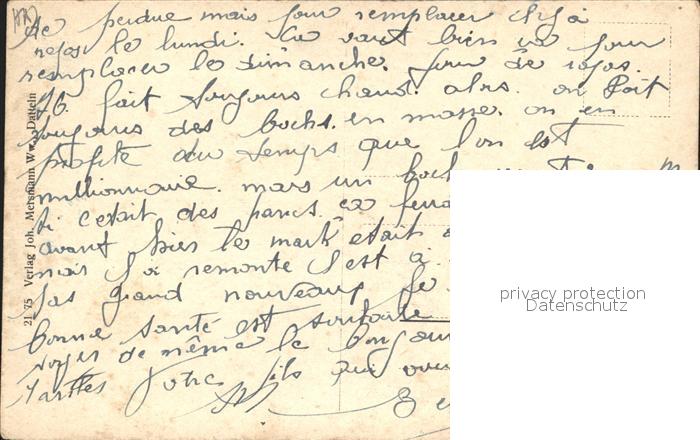 de perdue mais pour remplacer il y a
repos le lundi. Ca vaut bien un jour
remplacer le dimanche. jour de repos
Il fait toujours chaud. alors. on boit
toujours des bocks. en masse. on en
profite du temps que l'on est
millionnaire. mais un bock
si c'etait des francs. ca fera
avant hier le mark etait
mais il a remonte il est a
pas grand nouveaux je
bonne santé est souhaite
voyez de même le bonjour
tantes Votre fils qui vous
21 75 Verlag Joh. Mersmann Wwe., Datteln
privacy protection
Datenschutz